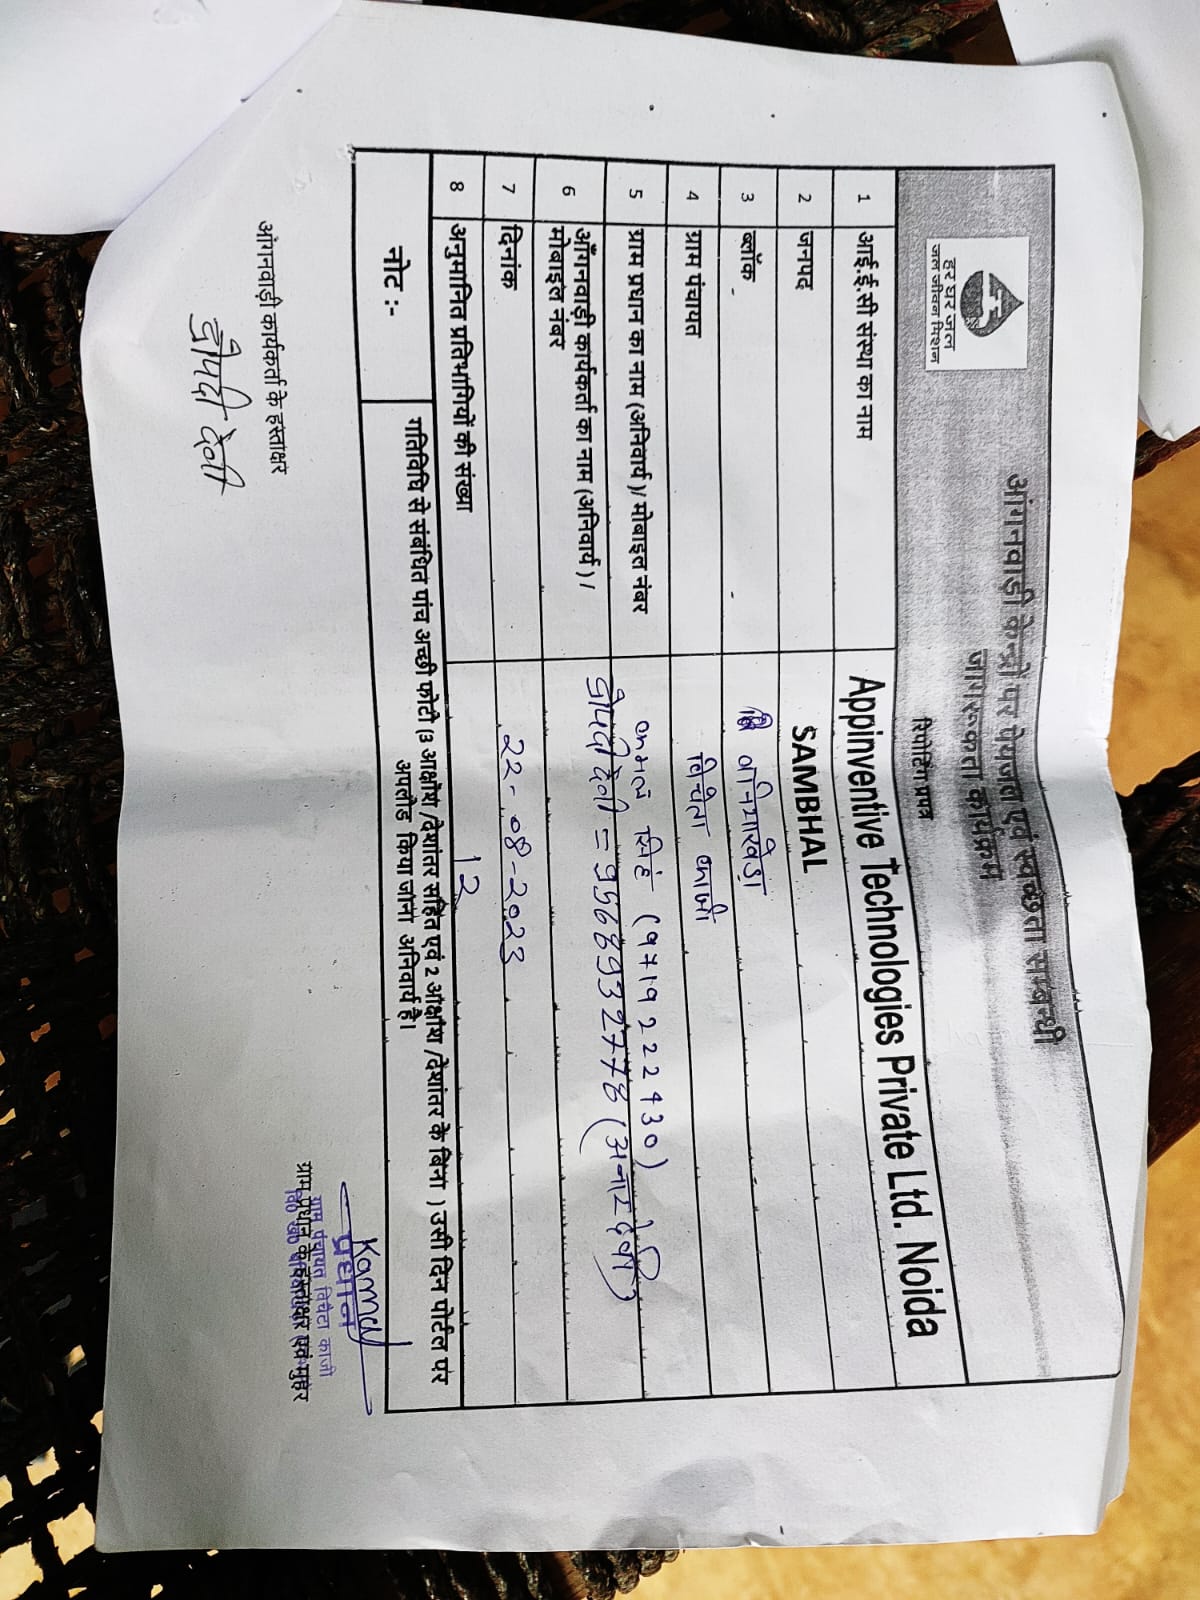 हर घर जल
जल जीवन मिशन
आंगनवाड़ी केन्द्रों पर पेयजल एवं स्वच्छता सम्बन्धी
जागरूकता कार्यक्रम
रिपोर्टिंग प्रपत्र
1 आई.ई.सी संस्था का नाम Appinventive Technologies Private Ltd. Noida
2 जनपद SAMBHAL
3 ब्लॉक - बनियाखेड़ा
4 ग्राम पंचायत विचेता काजी
5 ग्राम प्रधान का नाम (अनिवार्य)/ मोबाइल नंबर कमल सिंह (9719222930)
6 आँगनवाड़ी कार्यकर्ता का नाम (अनिवार्य) / द्रोपदी देवी = 9568932778
मोबाइल नंबर
7 दिनांक 22-08-2023
8 अनुमानित प्रतिभागियों की संख्या 12
नोट :- गतिविधि से संबंधित पांच अच्छी फोटो (3 आक्षांश /देशांतर सहित एवं 2 आक्षांश /देशांतर के बिना ) उसी दिन पोर्टल पर
अपलोड किया जाना अनिवार्य है।
Kamal
प्रधान
ग्राम पंचायत विचैटा काजी
आंगनवाड़ी कार्यकर्ता के हस्ताक्षर ग्राम प्रधान के हस्ताक्षर एवं मुहर
द्रोपदी देवी